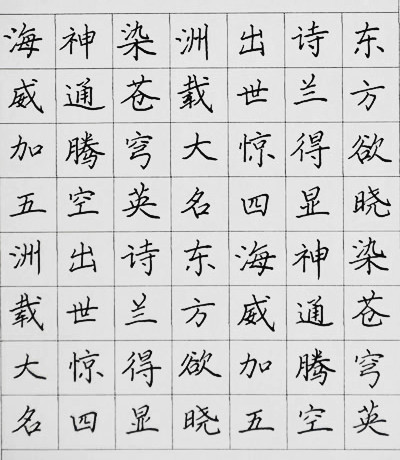 海神染洲出诗东
威通苍载世兰方
加腾穹大惊得欲
五空英名四显晓
洲出诗东海神染
载世兰方威通苍
大惊得欲加腾穹
名四显晓五空英